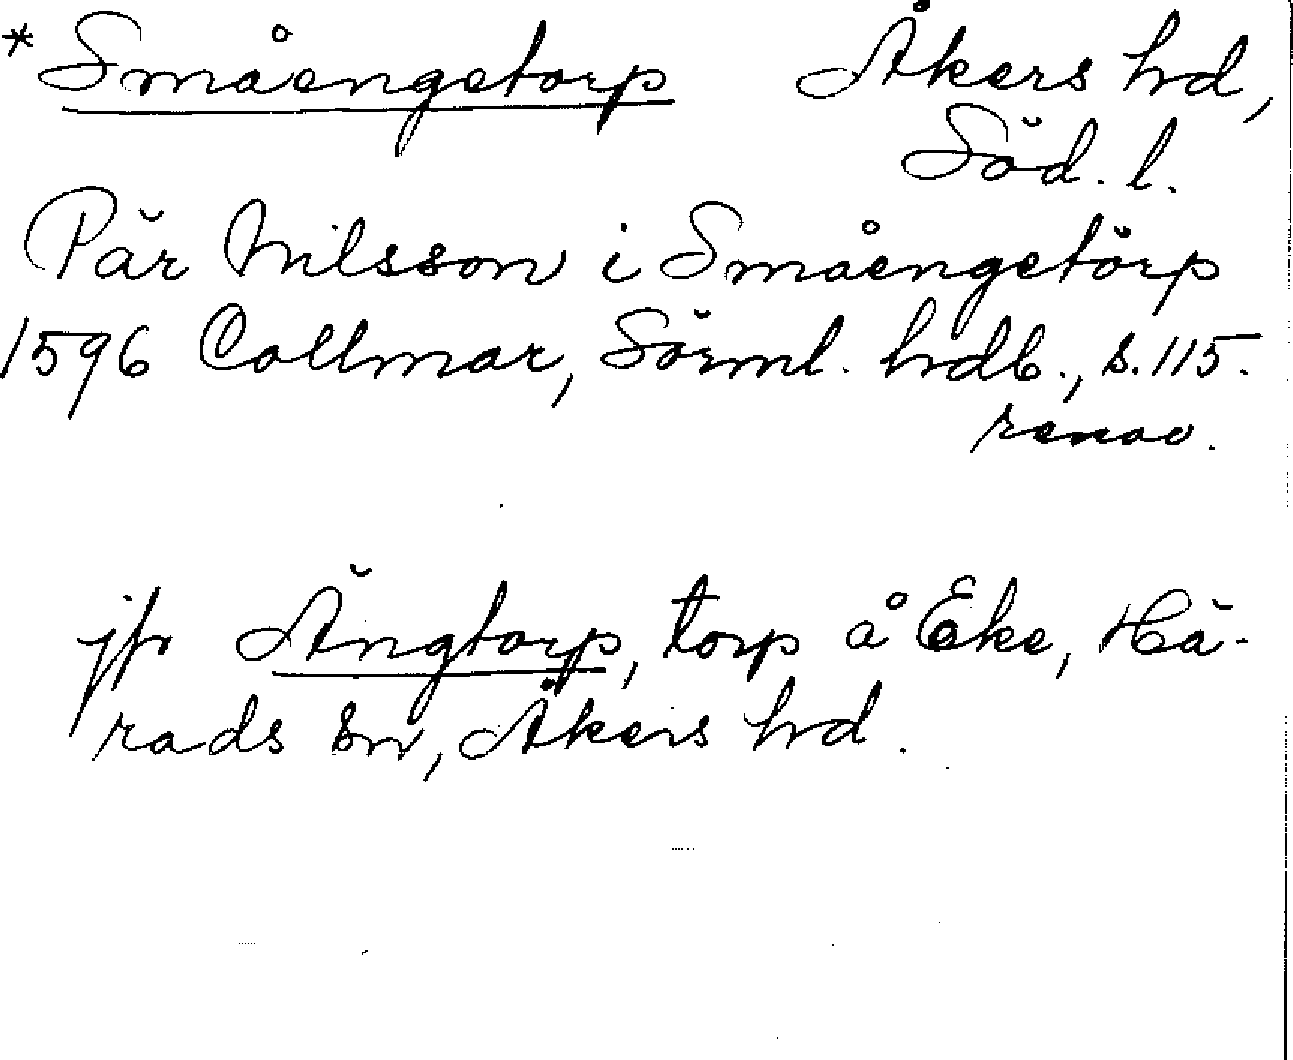 *Småengetorp Åkers hd,
Söd. l.
Pär Nilsson i Småengetörp
1596 Collmar, Sörml. hdb., s. 115.
renov.
jfr Ängtorp, torp å Eke, Hä-
rads sn, Åkers hd.